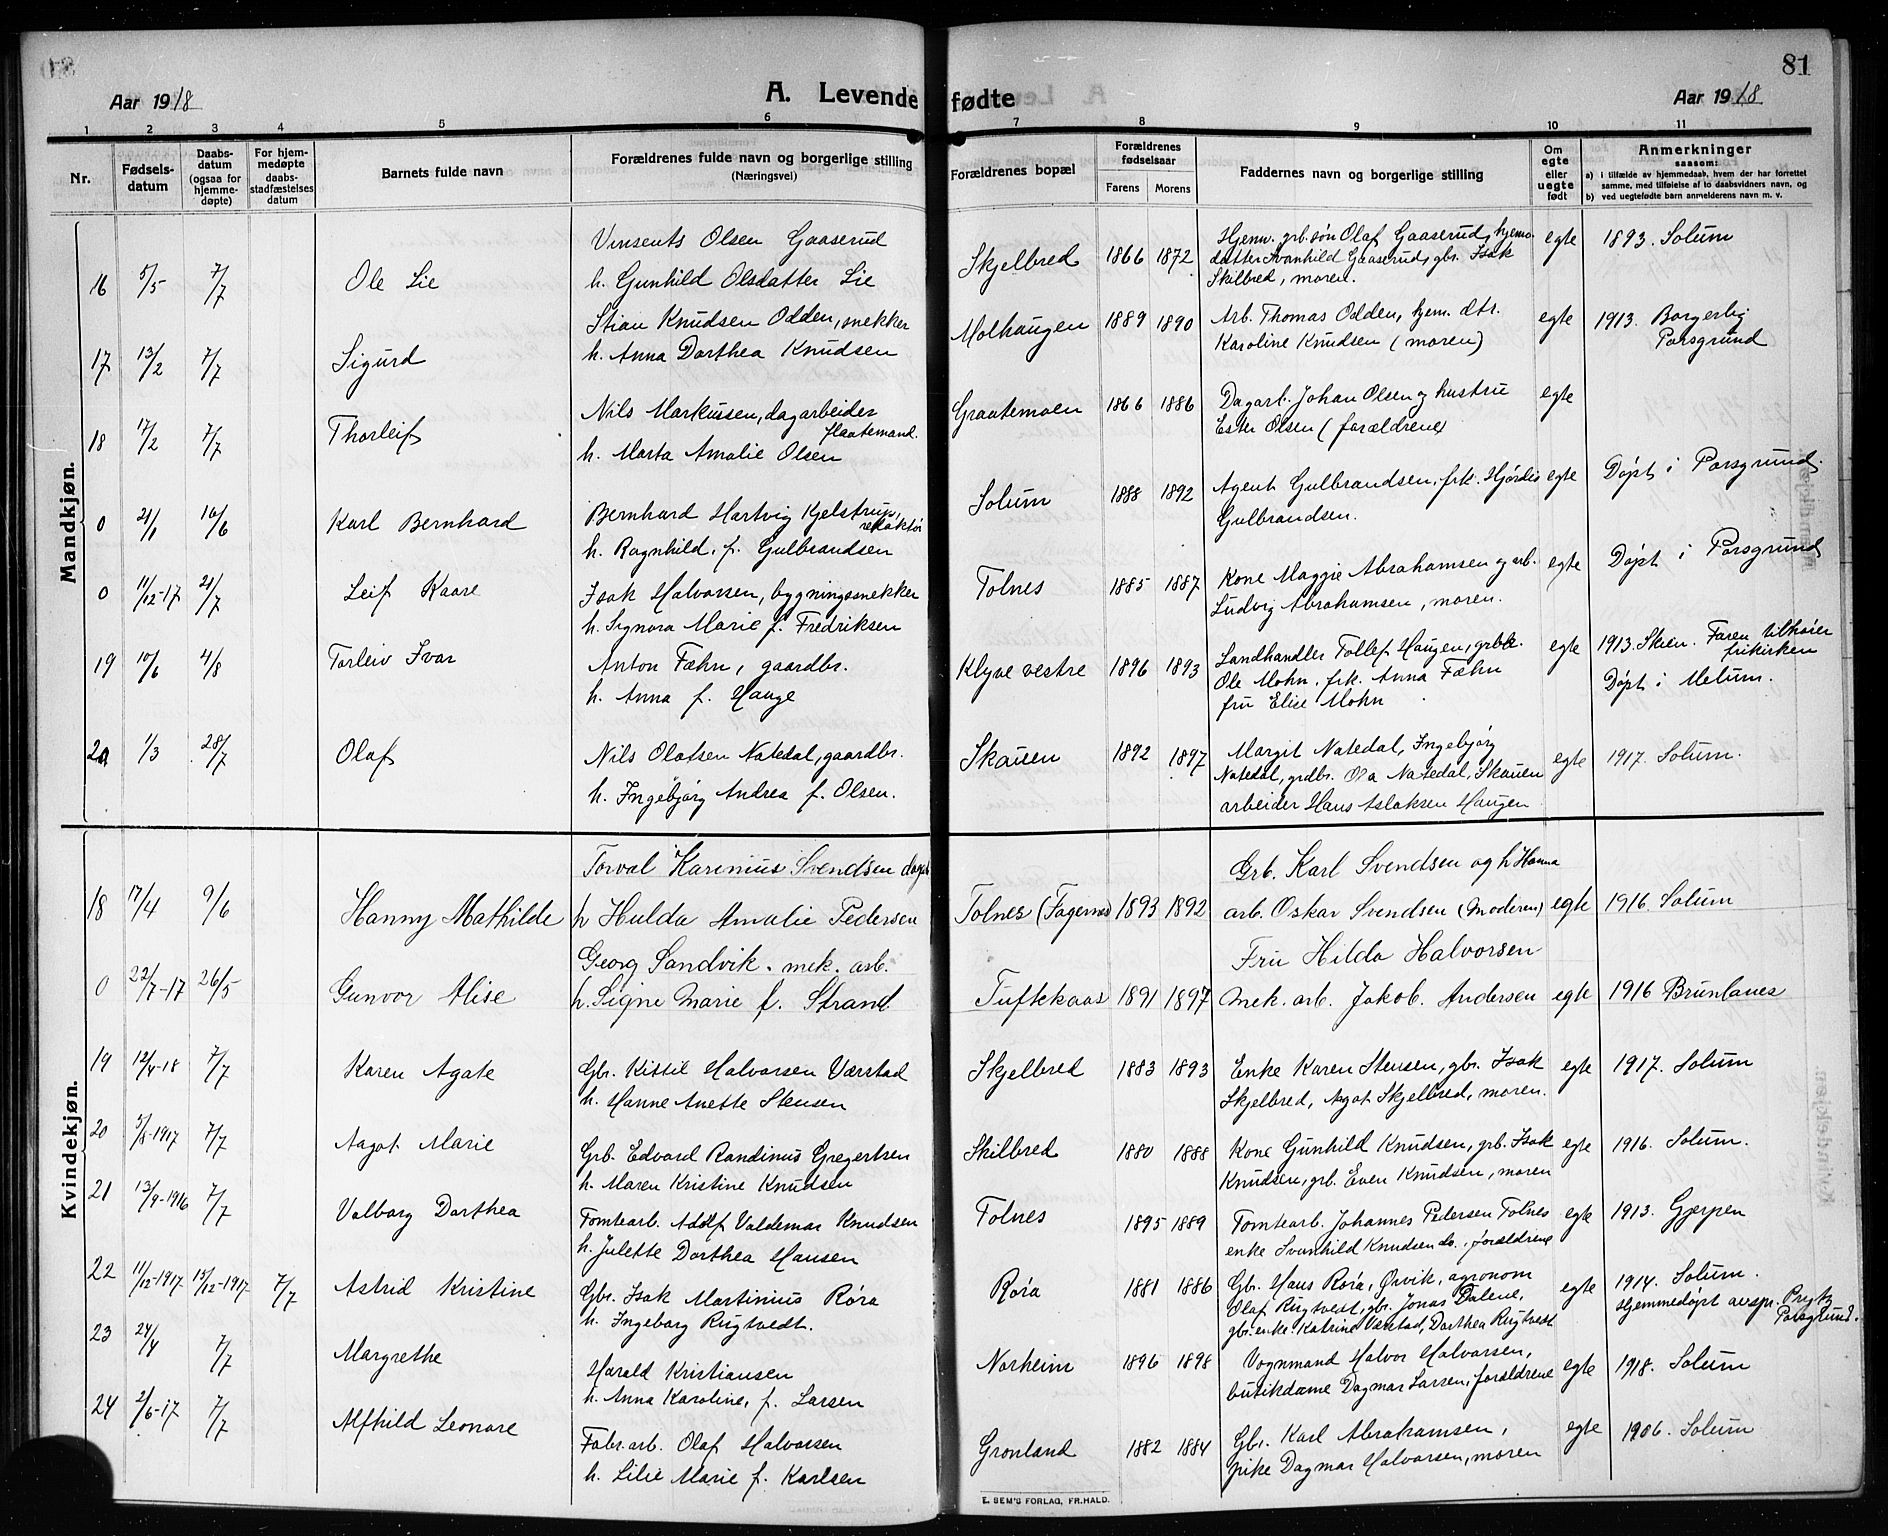 81
Aar 1918
A. Levende fødte
Aar 1918
1 2 3 4 5 6 7 8 9 10 11
Nr.
Fødsels-
datum
Daabs-
datum
(ogsaa for
hjemme-
døpte)
For hjem-
medøpte
daabs-
stadfæstelses
datum
Barnets fulde navn
Forældrenes fulde navn og borgerlige stilling
(Næringsvei)
Forældrenes bopæl
Forældrenes
fødselsaar
Farens Morens
Faddernes navn og borgerlige stilling
Om
egte
eller
uegte
født
Anmerkninger
saasom:
a) i tilfælde av hjemmedaab, hvem der har forrettet
samme, med tilføielse af to daabsvidners navn, og
b) ved uegtefødte barn anmelderens navn m. v.
Mandkjøn.
16 5/5 7/7 Ole Lie
Vinsents Olsen Gaaserud
h. Gunhild Olsdatter Lie
Skjelbred 1866 1872
Hjem. grb. søn Olaf Gaaserud, hjemv.
datter Svanhild Gaaserud, gbr. Isak
Skilbred, moren.
egte 1893. Solum
17 13/2 7/7 Sigurd
Stian Knudsen Odden, snekker
h. Anna Dorthea Knudsen
Molhaugen 1889 1890
Arb. Thomas Odden, hjem. dtr.
Karoline Knudsen (moren)
egte 1913. Borgerlig
Porsgrund
18 17/2 7/7 Thorleif
Nils Markussen, dagarbeider
flaatemand.
h. Marta Amalie Olsen
Graatemoen 1866 1886
Dagarb. Johan Olsen og hustru
Ester Olsen (forældrene)
egte
0 21/1 16/6 Karl Bernhard
Bernhard Hartvig Kjelstrup,
redaktør
h. Ragnhild, f. Gulbrandsen
Solum 1888 1892
Agent Gulbrandsen, frk. Hjørdis
Gulbrandsen.
egte Døpt i Porsgrund.
0 11/12-17 21/7 Leif Kaare
Isak Halvorsen, bygningssnekker
h. Signora Marie f. Fredriksen
Tolnes 1885 1887
Kone Maggie Abrahamsen og arb.
Ludvig Abrahamsen, moren.
egte Døpt i Porsgrund
19 10/6 4/8 Torleiv Ivar
Anton Fæhn, gaardbr.
h. Anna f. Hauge
Klyve vestre 1896 1893
Landhandler Tollef Haugen, grbbr.
Ole Mohn, frk. Anna Fæhn
fru Elise Mohn
egte 1913. Skien. Faren tilhører
frikirken
Døpt i Melum.
20 1/3 28/7 Olaf
Nils Olafsen Natedal, gaardbr.
h. Ingebjørg Andrea f. Olsen.
Skauen 1892 1897
Margit Natedal, Ingebjørg
Natedal, grdbr. Ola Natedal, Skauen
arbeider Hans Aslaksen Haugen
egte 1917. Solum.
Kvindekjøn.
18 17/4 9/6 Hanny Mathilde
Torval Karinius Svendsen dagarb
h Hulda Amalie Pedersen
Tolnes (Fagernes) 1893 1892
Grb. Karl Svendsen og h Hanna
arb. Oskar Svendsen (Moderen)
egte 1916 Solum
0 22/7-17 26/5 Gunvor Alise
Georg Sandvik. mek. arb.
h. Signe Marie f. Strand
Tuftekaas 1891 1897
Fru Hilda Halvorsen
mek. arb. Jakob. Andersen
egte 1916 Brunlanes
19 12/4-18 7/7 Karen Agate
Gbr. Kittil Halvorsen Værstad
h. Hanne Anette Stensen
Skjelbred 1883 1893
Enke Karen Stensen, gbr. Isak
Skjelbred, Agot Skjelbred, moren.
egte 1917. Solum
20 5/8-1917 7/7 Aagot Marie
Grb. Edvard Randinus Gregertsen
h. Maren Kristine Knudsen
Skilbred 1880 1888
Kone Gunhild Knudsen, grb. Isak
Knudsen, grb. Even Knudsen, moren
egte 1916. Solum.
21 13/9-1916 7/7 Valborg Dorthea
Tomtearb. Adolf Valdemar Knudsen
h. Julette Dorthea Hansen
Tolnes 1895 1889
Tomtearb. Johannes Pedersen Tolnes
enke Svanhild Knudsen do., forældrene
egte 1913. Gjerpen
22 11/12-1917 15/12-1917 7/7 Astrid Kristine
Gbr. Isak Martinius Røra
h. Ingeborg Rugtvedt.
Røra 1881 1886
Gbr. Hans Røra, Ørvik, agronom
Olaf Rugtvedt, gbr. Jonas Dalene,
gbr. enke Katrine Værstad, Dorthea Rugtvedt
egte 1914. Solum.
Hjemmedøpt av spr. Prytz
Porsgrund.
23 24/4 7/7 Margrethe
Harald Kristiansen
h. Anna Karoline, f. Larsen
Norheim 1896 1898
Vognmand Halvor Halvorsen,
butikdame Dagmar Larsen, forældrene
egte 1918. Solum
24 2/6-17 7/7 Alfhild Leonore
Fabr. arb. Olaf Halvorsen
h. Lilie Marie f. Karlsen
Grønland 1882 1884
Gbr. Karl Abrahamsen,
pike Dagmar Halvorsen, moren
egte 1906. Solum
E. SEM'S FORLAG, FR.HALD.